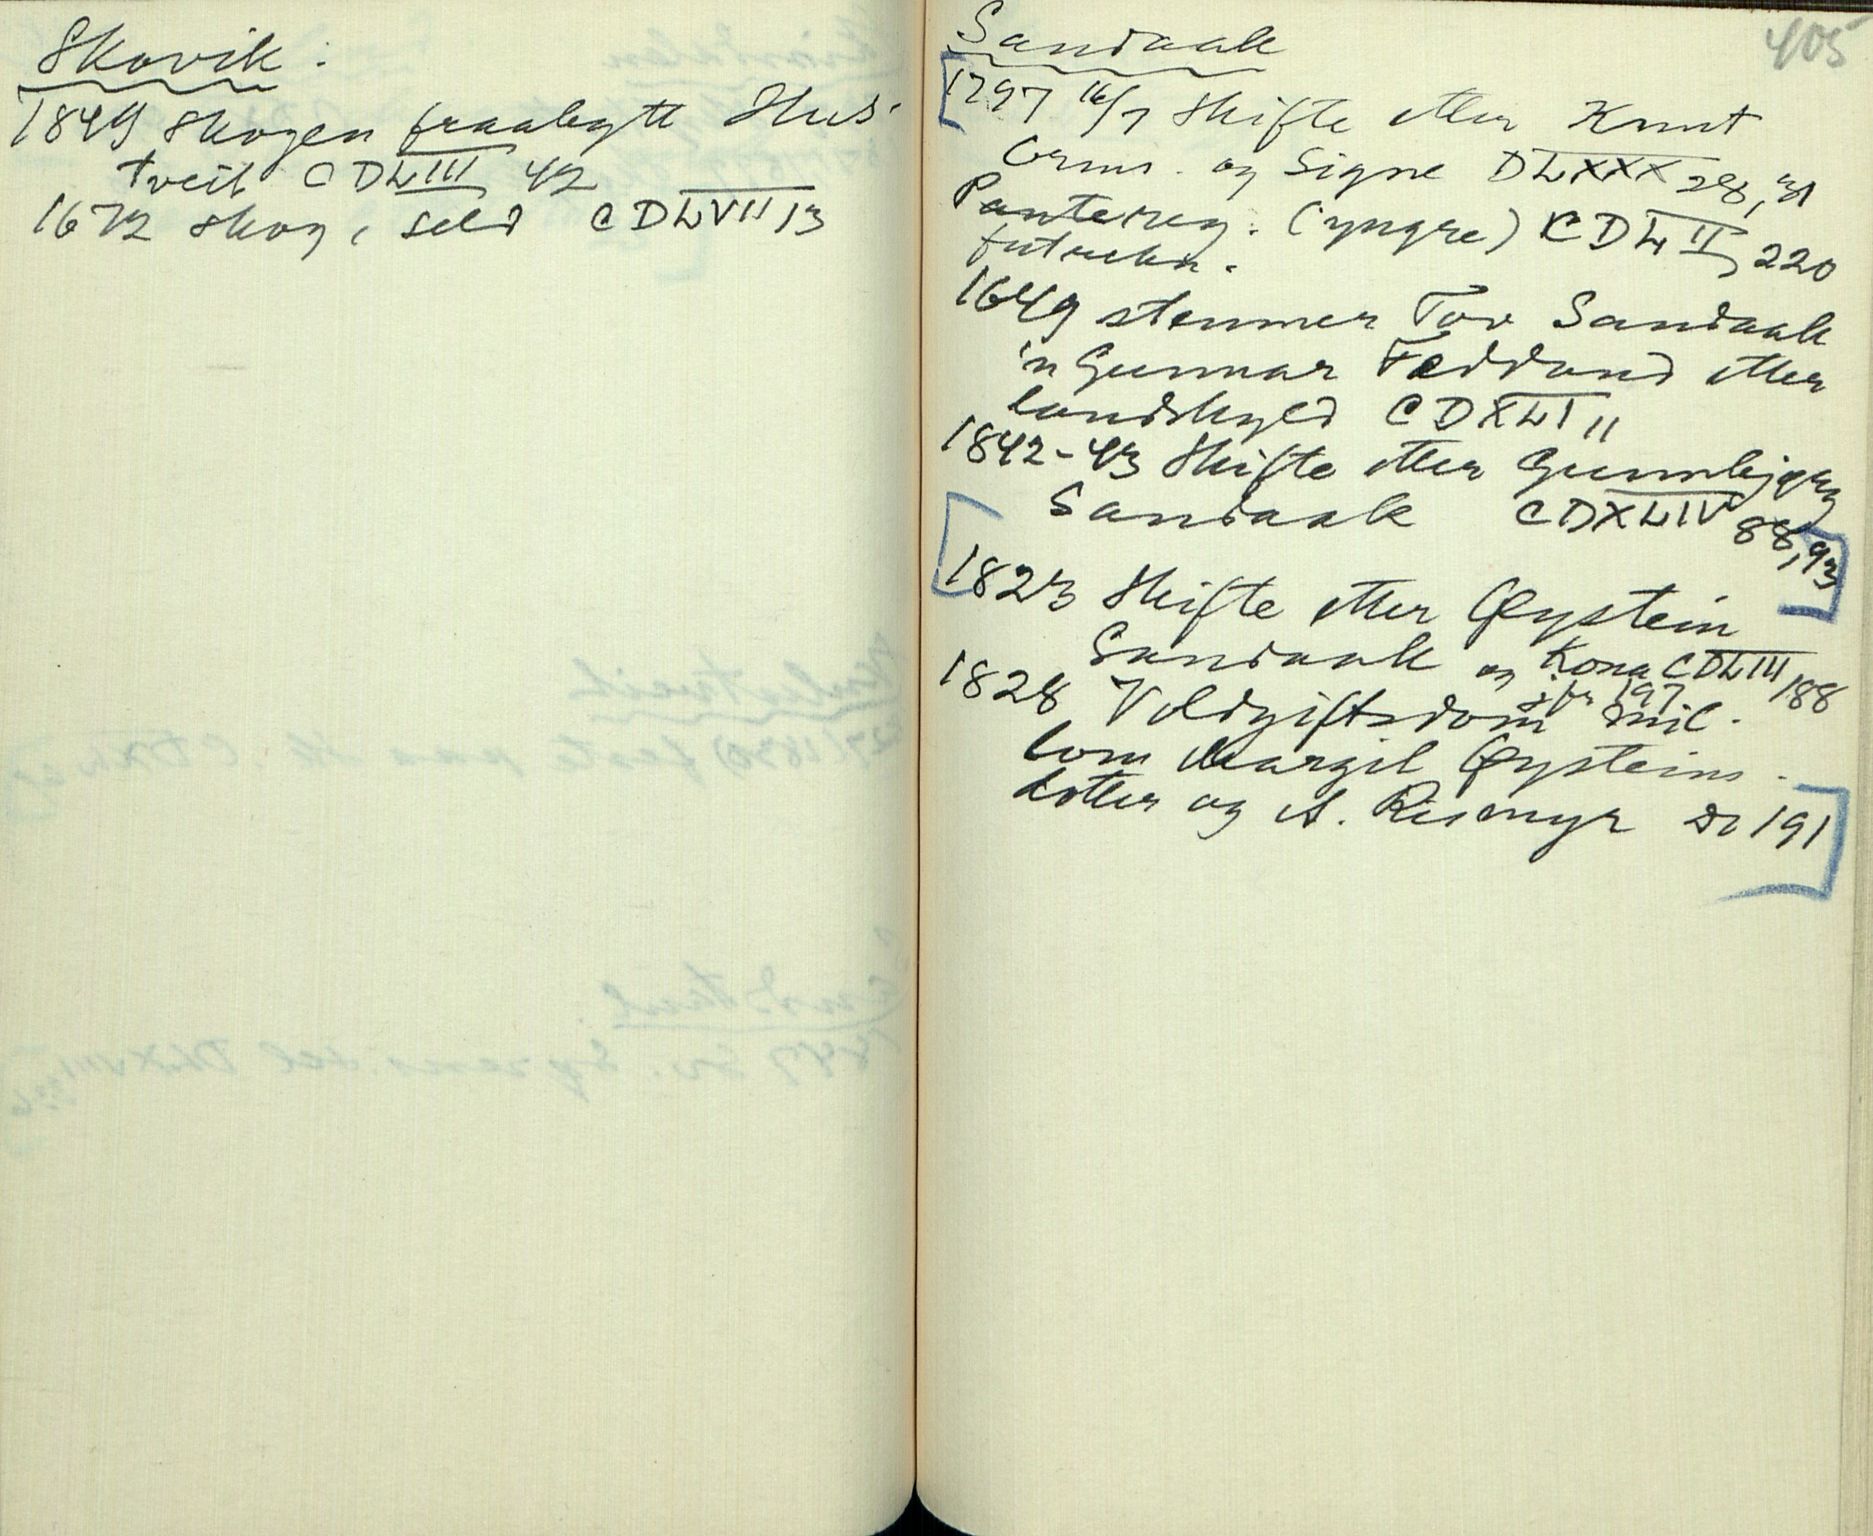 Skovik:
1849 skogen fraabytt Hus-
tveit CDLIII 42
1672 skog, seld CDLVII 13
405
Sandaak
1797 16/7 Skifte etter Knut
Orms. og Signe DLXXX 28, 31
Pantereg. (yngre) CDLII, 220
1649 stemner Tov Sandaak
Gunnar Feddand etter
landskyld CDXLI 11
1842-43 Skifte etter Gunnbjørg
Sandaak CDXLIV 88, 93
1823 Skifte etter Øystein
Sandaak og Kona CDLIII 188
197
1828 Voldgiftsdom mil-
lom Margit Øysteins-
dotter og A. Rismyr Do 191